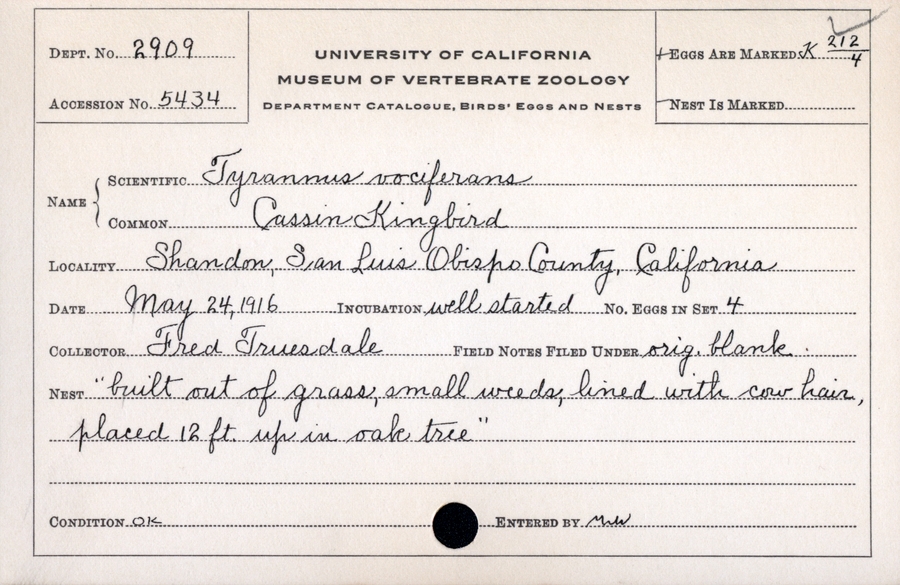 DEPT. NO. 2909
ACCESSION NO. 5434
UNIVERSITY OF CALIFORNIA
MUSEUM OF VERTEBRATE ZOOLOGY
DEPARTMENT CATALOGUE, BIRDS' EGGS AND NESTS
EGGS ARE MARKED K 212/4
NEST IS MARKED
NAME
SCIENTIFIC Tyrannus vociferans
COMMON Cassin Kingbird
LOCALITY Shandon, San Luis Obispo County, California
DATE May 24, 1916 INCUBATION well started NO. EGGS IN SET 4
COLLECTOR Fred Truesdale FIELD NOTES FILED UNDER orig. blank.
NEST "built out of grass, small weeds, lined with cow hair,
placed 12 ft. up in oak tree"
CONDITION OK ENTERED BY